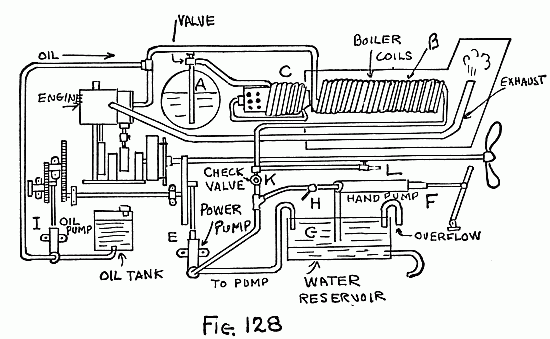 VALVE
OIL
BOILER COILS
B
A
C
ENGINE
EXHAUST
CHECK VALVE
K
L
H
HAND PUMP
F
I
OIL PUMP
E
POWER PUMP
G
OVERFLOW
OIL TANK
TO PUMP
WATER RESERVOIR
Fig. 128